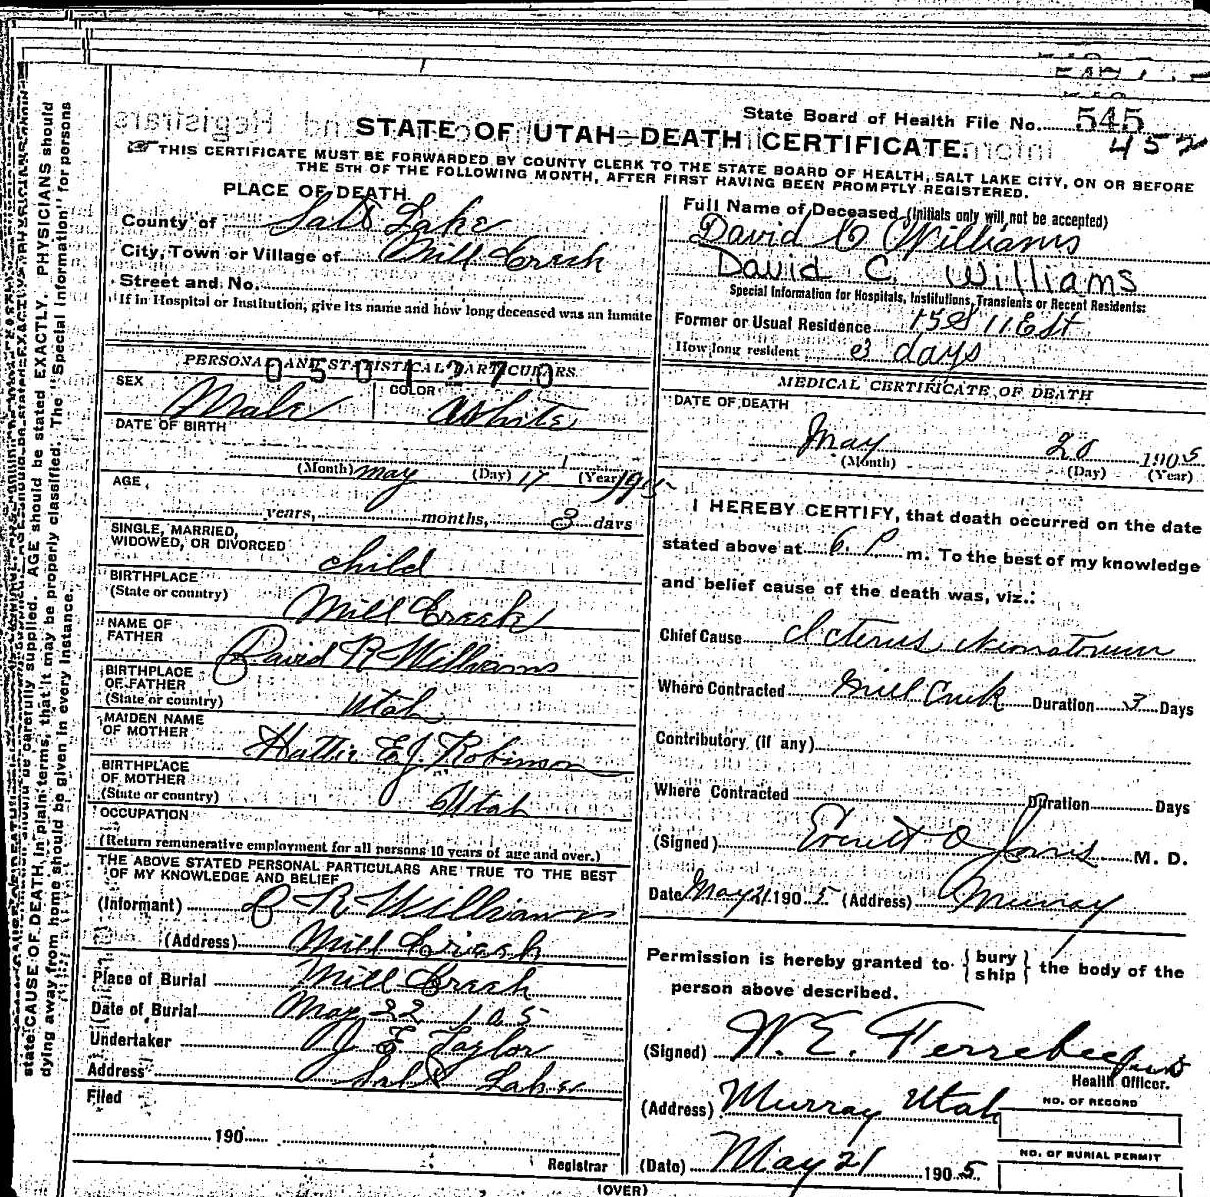 State Board of Health File No. 545
452
STATE OF UTAH—DEATH CERTIFICATE.
THIS CERTIFICATE MUST BE FORWARDED BY COUNTY CLERK TO THE STATE BOARD OF HEALTH, SALT LAKE CITY, ON OR BEFORE
THE 5TH OF THE FOLLOWING MONTH, AFTER FIRST HAVING BEEN PROMPTLY REGISTERED.
PLACE OF DEATH
County of Salt Lake
City, Town or Village of Mill Creek
Street and No.
If in Hospital or Institution, give its name and how long deceased was an inmate
PERSONAL AND STATISTICAL PARTICULARS.
0501270
SEX Male COLOR White
DATE OF BIRTH
(Month) May (Day) 17 (Year) 1905
AGE
years, months, 3 days
SINGLE, MARRIED,
WIDOWED, OR DIVORCED child
BIRTHPLACE
(State or country) Mill Creek
NAME OF
FATHER David R Williams
BIRTHPLACE
OF FATHER
(State or country) Utah
MAIDEN NAME
OF MOTHER Hattie E. J. Robinson
BIRTHPLACE
OF MOTHER
(State or country) Utah
OCCUPATION
(Return remunerative employment for all persons 10 years of age and over.)
THE ABOVE STATED PERSONAL PARTICULARS ARE TRUE TO THE BEST
OF MY KNOWLEDGE AND BELIEF
(Informant) R Williams
(Address) Mill Creek
Place of Burial Mill Creek
Date of Burial May 22 105
Undertaker J E Taylor
Address Salt Lake
Filed
190
Registrar
Full Name of Deceased (Initials only will not be accepted)
David C Williams
DAVID C. WILLIAMS
Special Information for Hospitals, Institutions, Transients or Recent Residents:
Former or Usual Residence 15 S 11 Est
How long resident 3 days
MEDICAL CERTIFICATE OF DEATH
DATE OF DEATH
May 20 1905
(Month) (Day) (Year)
I HEREBY CERTIFY, that death occurred on the date
stated above at 6. P. m. To the best of my knowledge
and belief cause of the death was, viz.:
Chief Cause Icterus Neonatorum
Where Contracted Mill Creek Duration 3 Days
Contributory (if any)
Where Contracted Duration Days
(Signed) Everett O Jones M. D.
Date May 21 1905 (Address) Murray
Permission is hereby granted to { bury
ship } the body of the
person above described.
(Signed) W. E. Ferrebee
Health Officer.
(Address) Murray Utah
NO. OF RECORD
(Date) May 21 1905
NO. OF BURIAL PERMIT
(OVER)
state CAUSE OF DEATH in plain terms, that it may be properly classified. The "Special Information" for persons
dying away from home should be given in every instance.
should be carefully supplied. AGE should be stated EXACTLY. PHYSICIANS should